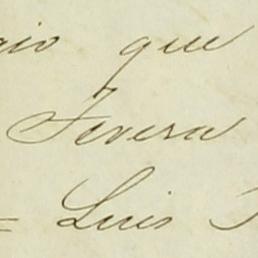 que
Tevera
= Luis